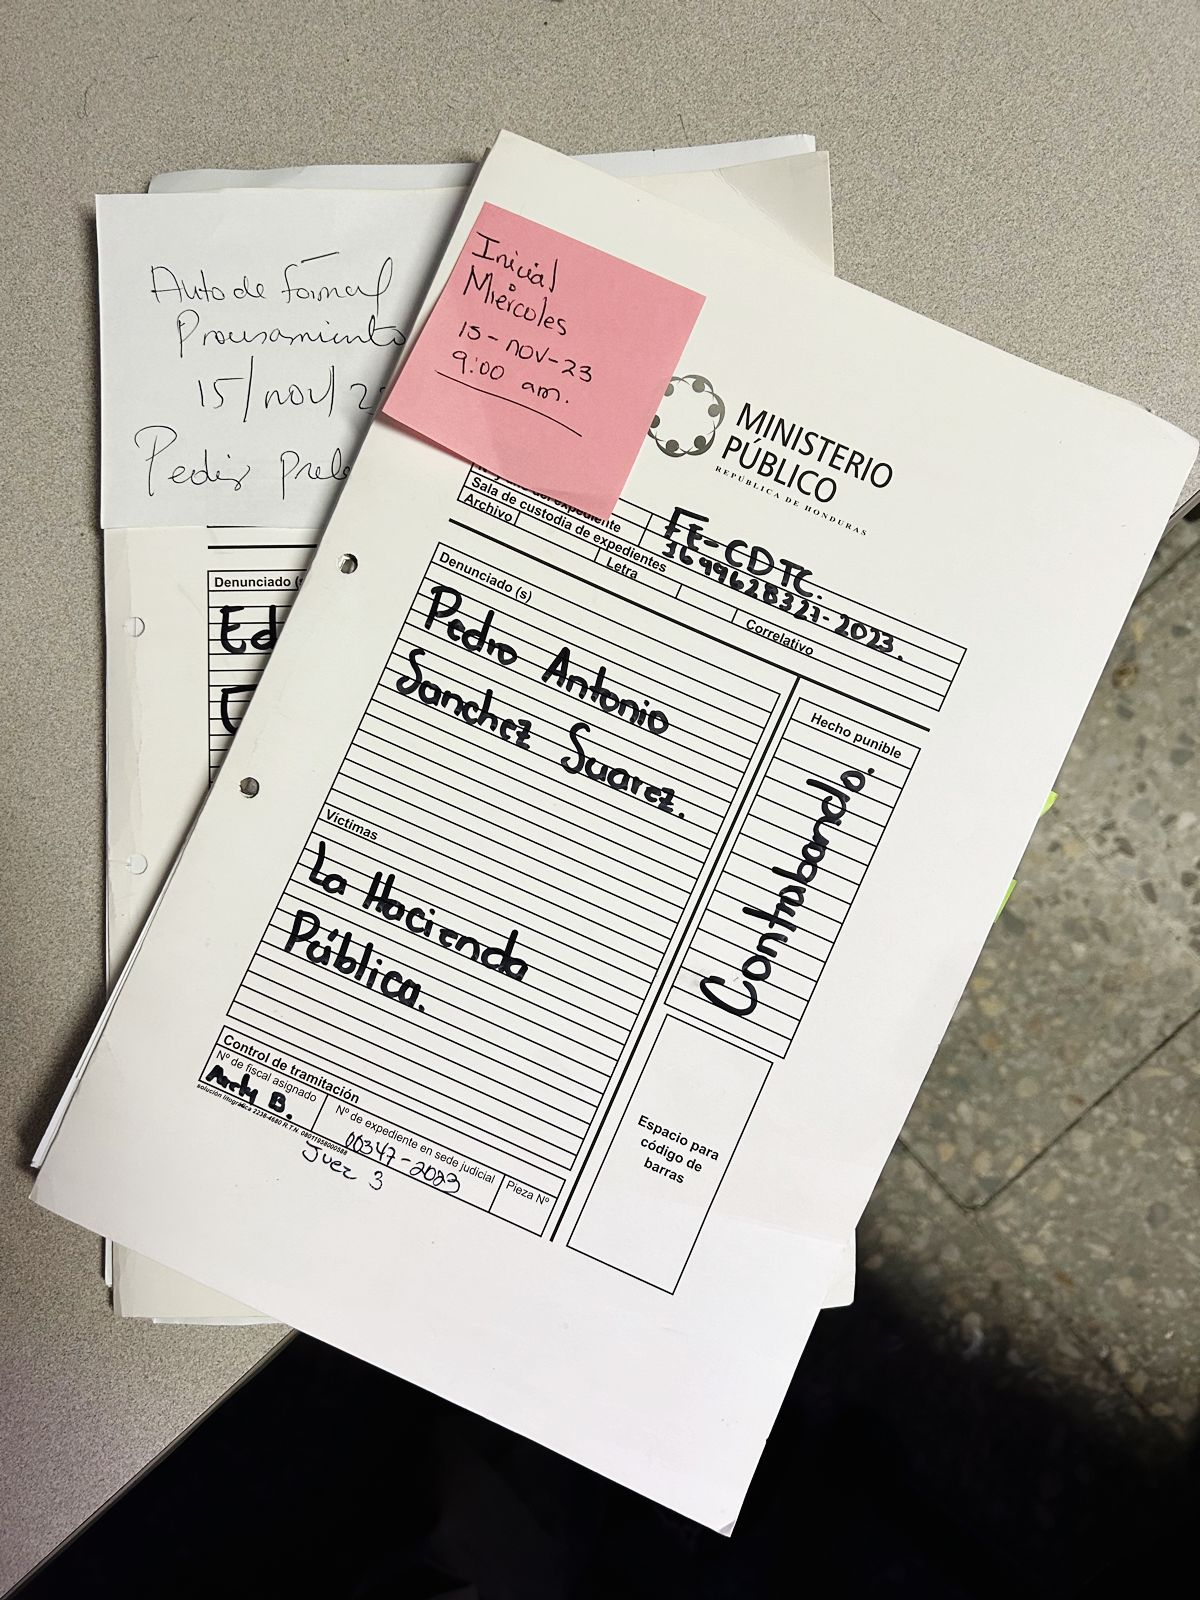 Auto de formal
Procesamiento
15/nov/2
Pedir
Denunciado (s
Ed
Inicial
Miercoles
15-nov-23
9:00 am.
MINISTERIO
PÚBLICO
REPÚBLICA DE HONDURAS
del expediente
FE-CDTC.
Sala de custodia de expedientes
1699628327-2023.
Archivo
Letra
Correlativo
Denunciado (s)
Pedro Antonio
Sanchez Suarez.
Hecho punible
Contrabando.
Víctimas
La Hacienda
Pública.
Control de tramitación
Nº de fiscal asignado
Arely B.
Nº de expediente en sede judicial
00347-2023
Pieza Nº
Juez 3
Espacio para
código de
barras